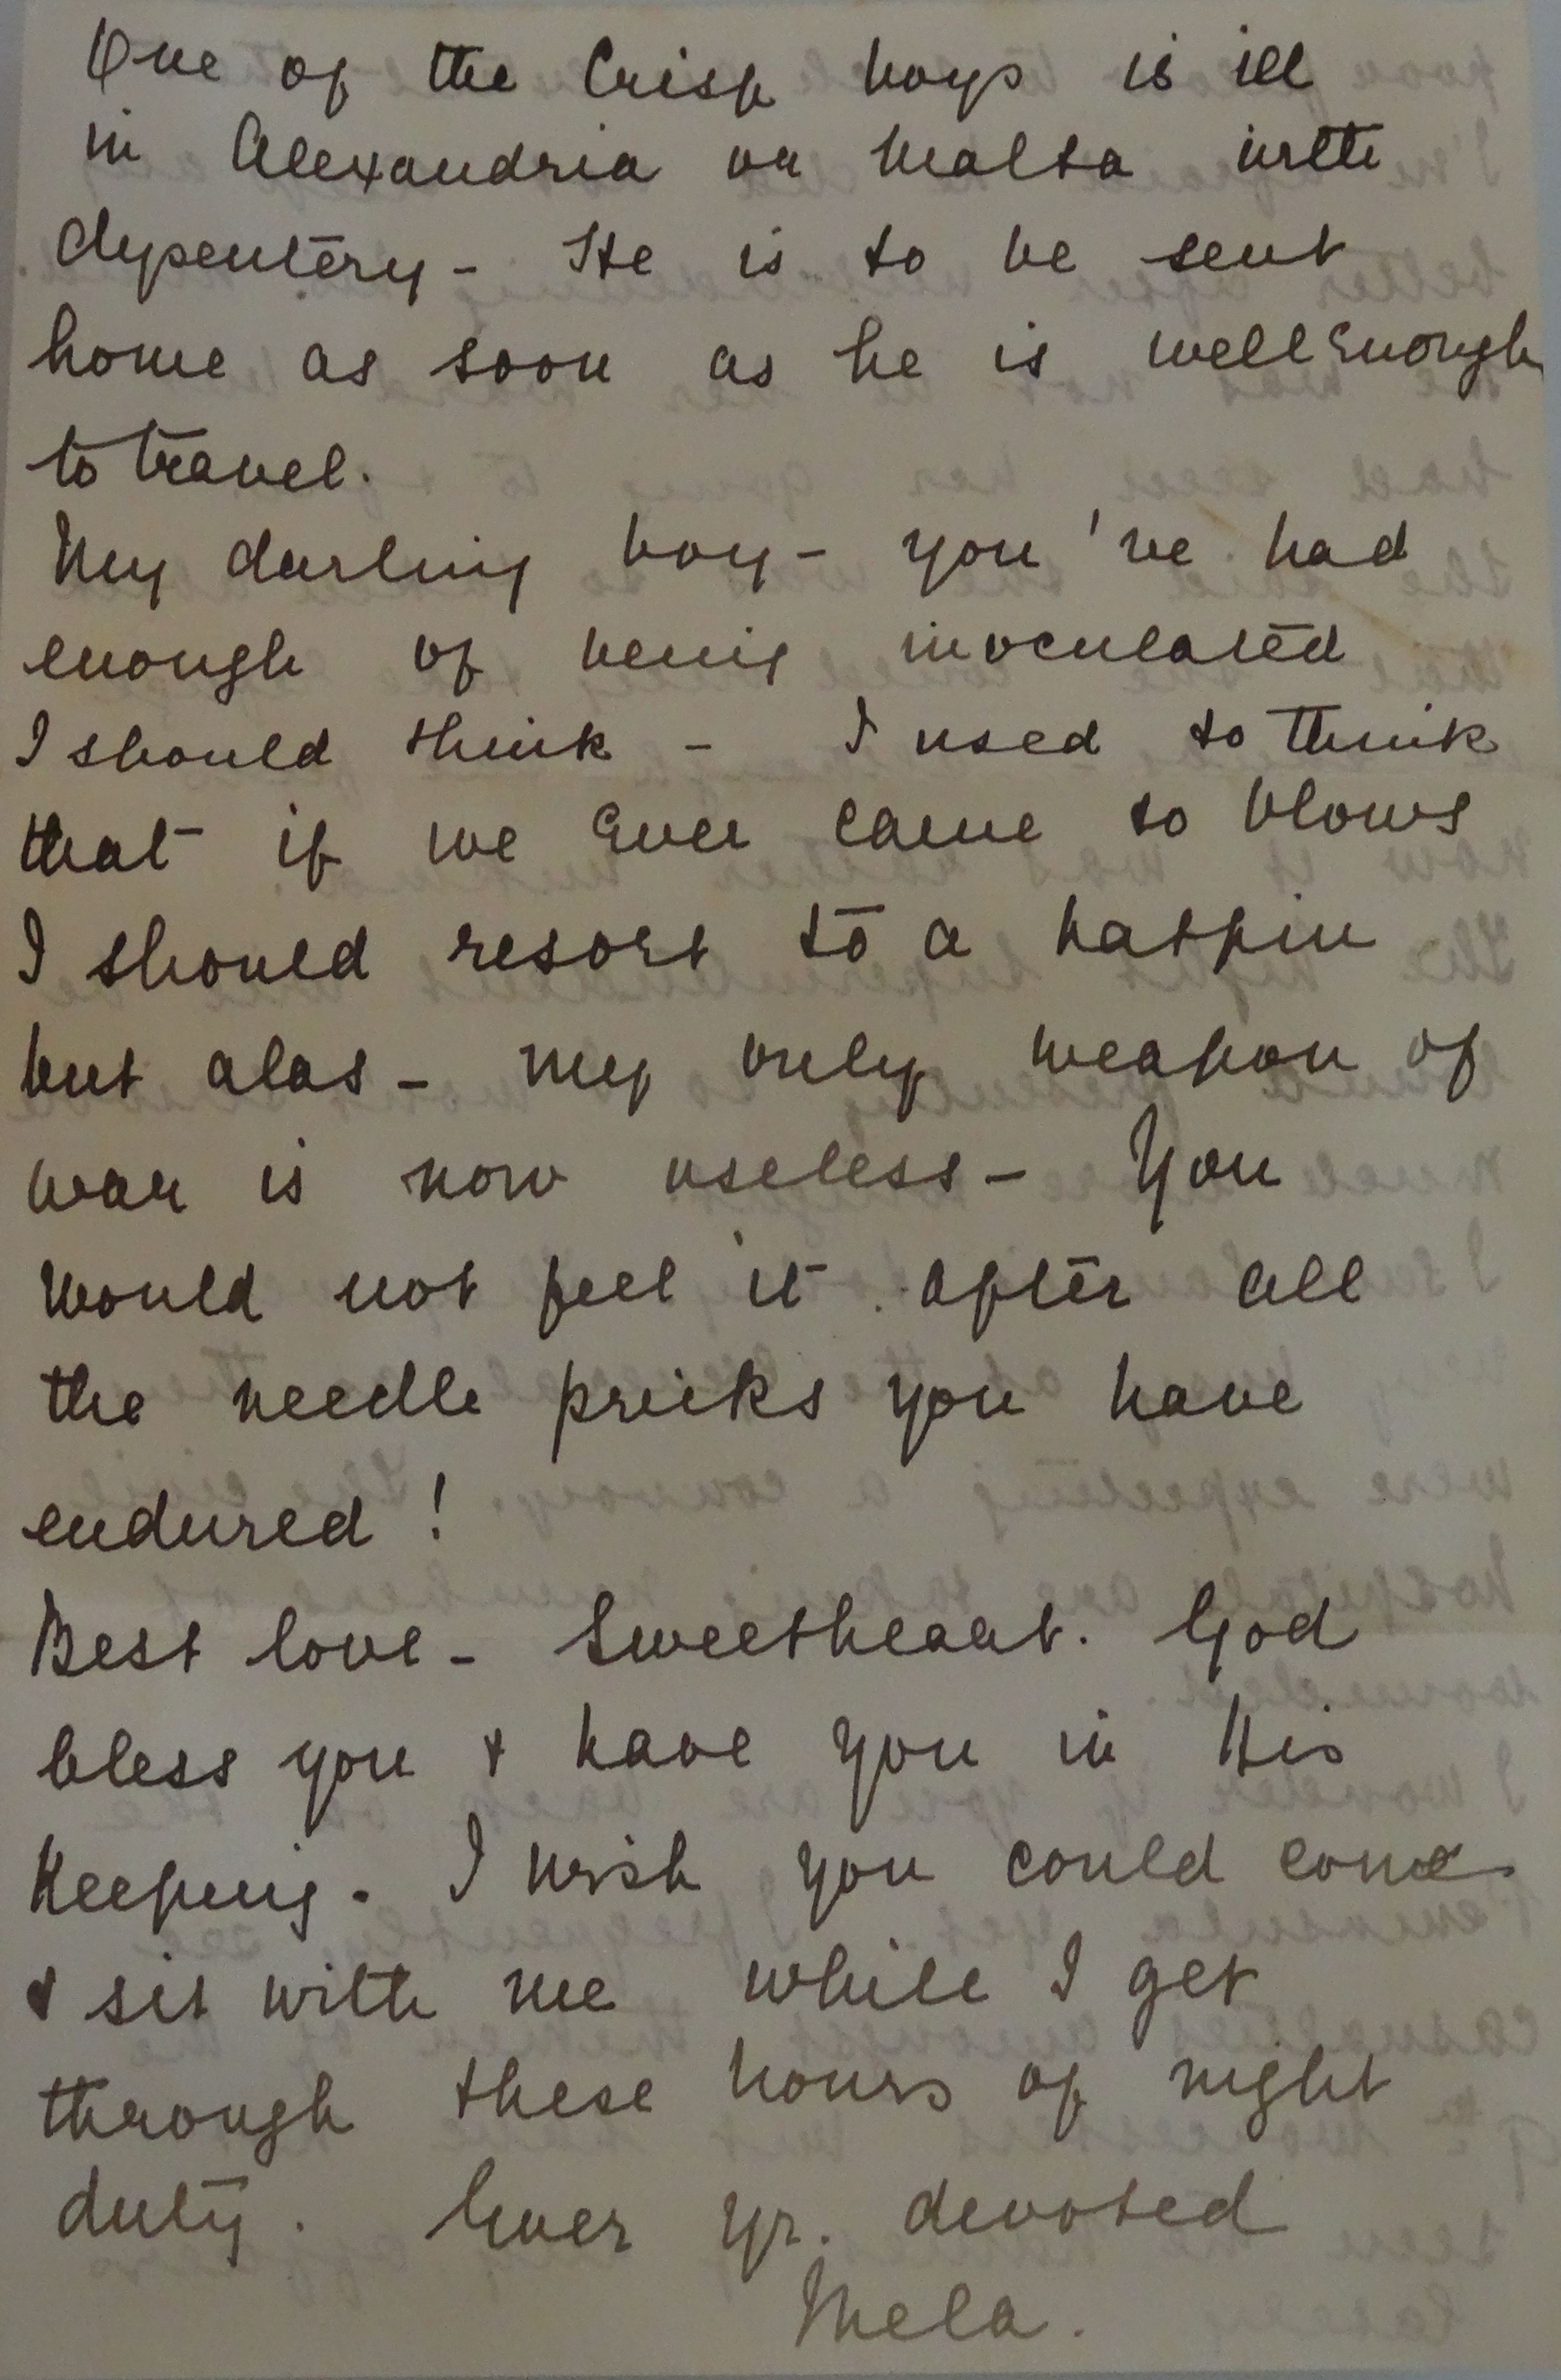 One of the Crisp boys is ill
in Alexandria or Malta with
dysentery - He is to be sent
home as soon as he is well enough
to travel.
My darling boy - you've had
enough of being inoculated
I should think - I used to think
that if we ever came to blows
I should resort to a hatpin
but alas - my only weapon of
war is now useless - You
would not feel it after all
the needle pricks you have
endured !
Best love - Sweetheart. God
bless you & have you in His
Keeping. I wish you could come
& sit with me while I get
through these hours of night
duty. Ever yr. devoted
Mela.